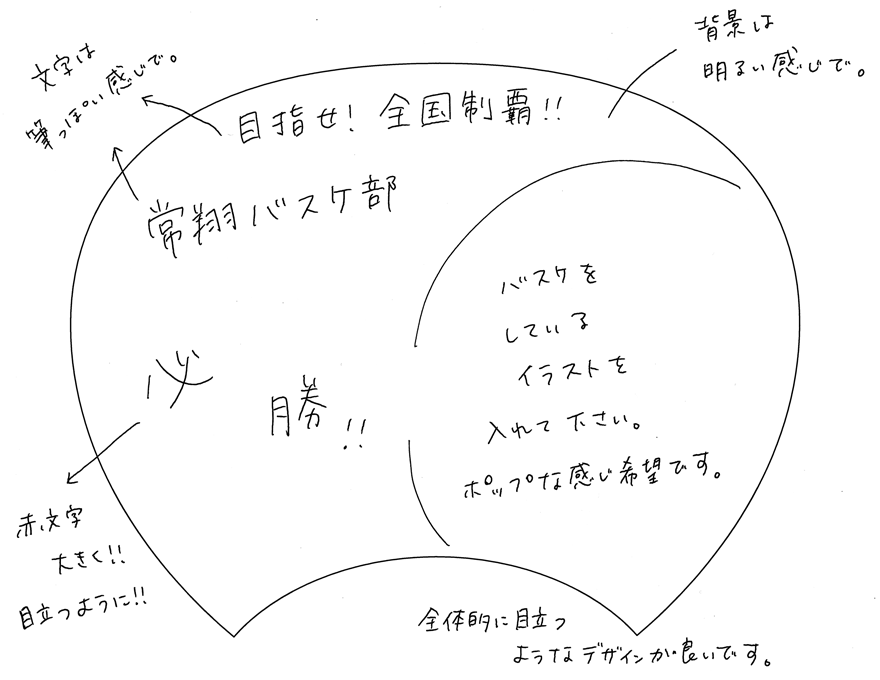 文字は
筆っぽい感じで。
背景は
明るい感じで。
目指せ! 全国制覇!!
常翔バスケ部
必
勝!!
バスケを
している
イラストを
入れて下さい。
ポップな感じ希望です。
赤文字
大きく!!
目立つように!!
全体的に目立つ
ようなデザインが良いです。